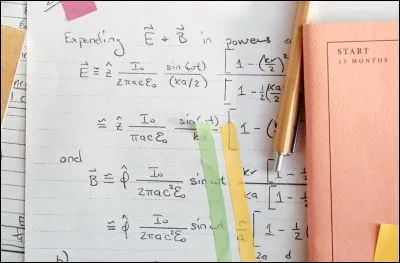 Expending E⃗ + B⃗ in powers o
E⃗ ≅ ẑ I₀/2πacε₀ sin(ωt)/(ka/2) [1 - (kr/2)² / [1 - ½(ka
≅ ẑ I₀/πacε₀ sin( t)/k [1 - (
and
B⃗ ≅ φ̂ I₀/2πac²ε₀ sin ωt kr/ka [1 - ½ / [1 - ½
≅ φ̂ I₀/2πac²ε₀ sin ω r/a [1 - ½
START
18 MONTHS